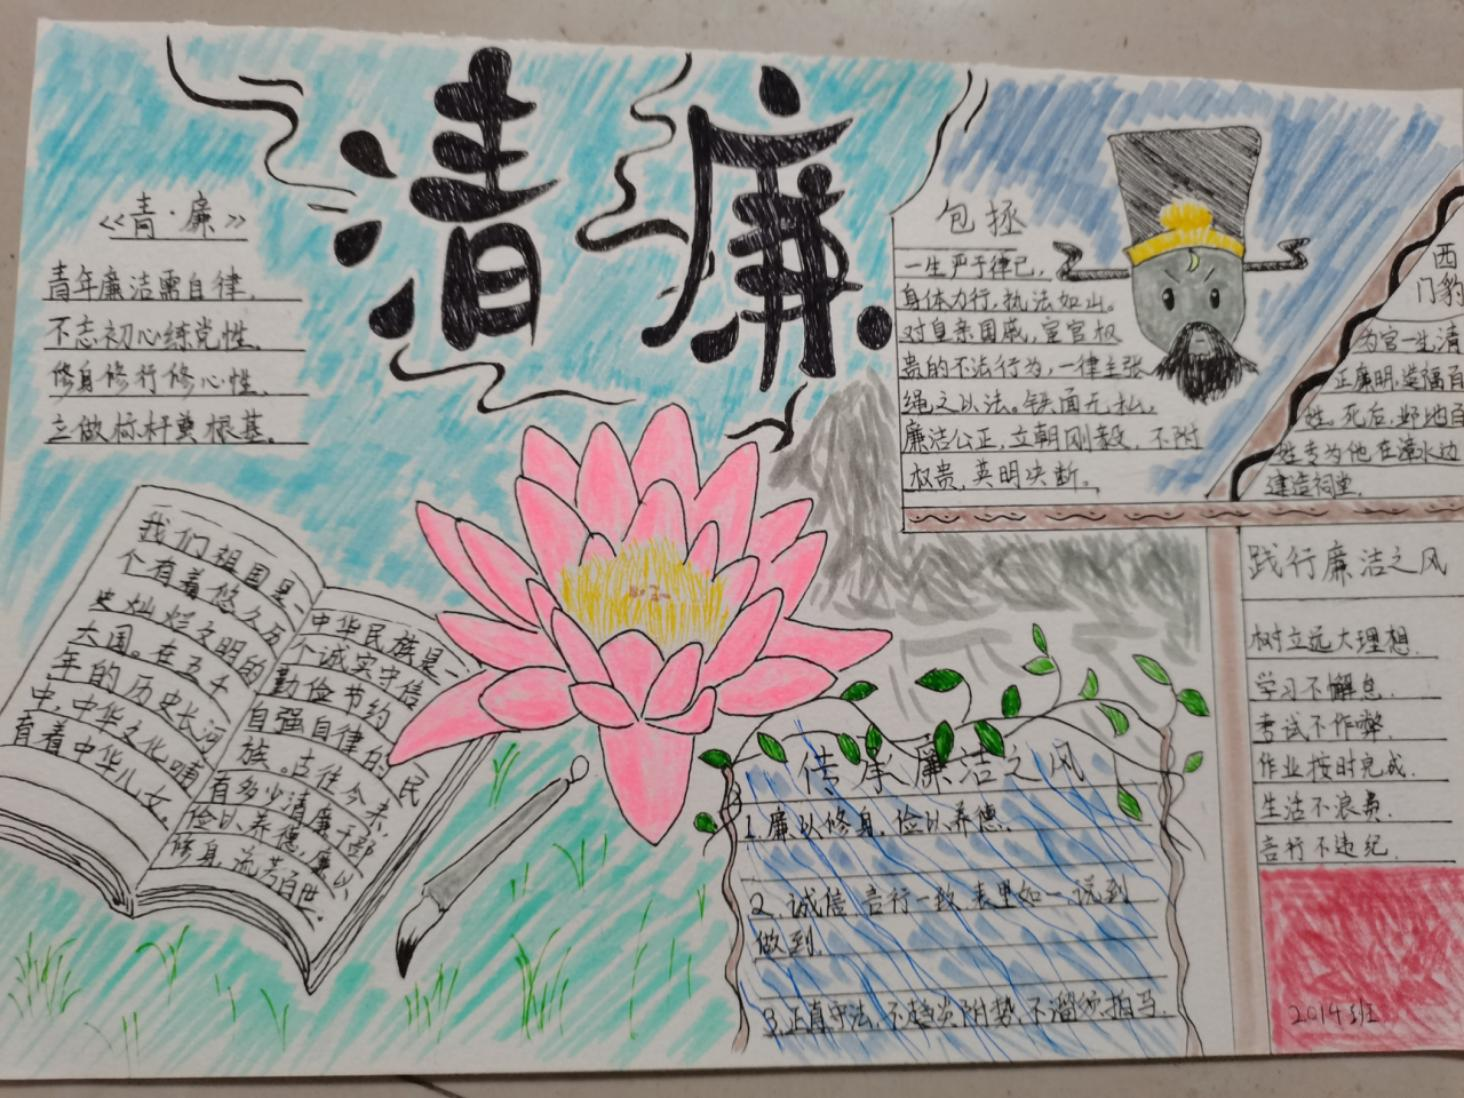 清廉
<<青·廉>>
青年廉洁需自律,
不忘初心练党性,
修身修行修心性,
立做标杆奠根基。
包拯
一生严于律己,
身体力行,执法如山。
对皇亲国戚,宦官权
贵的不法行为,一律主张
绳之以法。铁面无私,
廉洁公正,立朝刚毅,不附
权贵,英明决断。
西
门豹
为官一生清
正廉明,造福百
姓,死后,邺地百
姓专为他在漳水边
建造祠堂.
我们祖国是一
个有着悠久历
史灿烂文明的
大国。在五千
年的历史长河
中,中华文化哺
育着中华儿女。
中华民族是一
个诚实守信
勤俭节约
自强自律的民
族。古往今来,
有多少清廉干部
俭以养德,廉以
修身,流芳百世.
践行廉洁之风
树立远大理想.
学习不懈怠.
考试不作弊.
作业按时完成.
生活不浪费.
言行不违纪.
传承廉洁之风
1.廉以修身,俭以养德.
2.诚信,言行一致,表里如一,说到
做到.
3.正直守法,不趋炎附势,不溜须拍马.
2014班